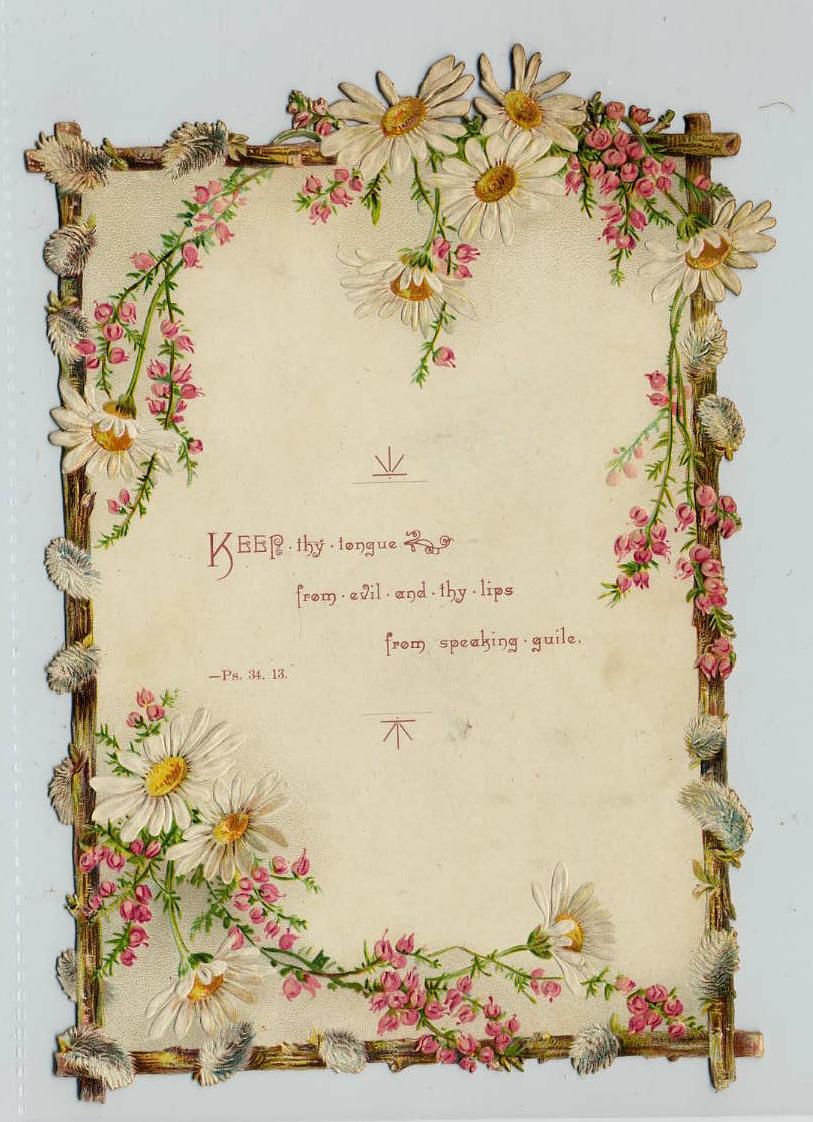 KEEP · thy · tongue
from · evil · and · thy · lips
from speaking · guile.
—Ps. 34, 13.